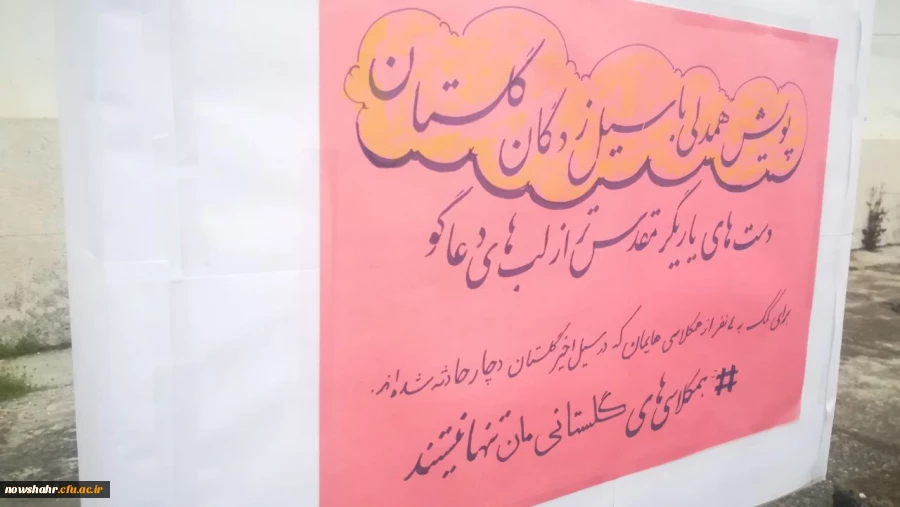 پویش همدلی با سیل زدگان گلستان
دست های یاریگر مقدس تر از لب های دعاگو
برای کمک به ۴ نفر از همکلاسی هایمان که در سیل اخیر گلستان دچار حادثه شده اند.
# همکلاسی های گلستانی مان تنها نیستند
nowshahr.cfu.ac.ir